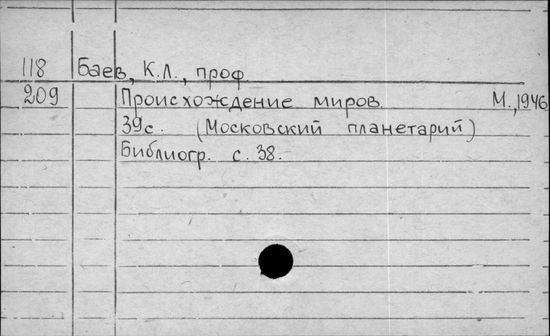 118 Баев, К.Л., проф
209 Происхождение миров. М., 1946
39с. (Московский планетарий)
Библиогр. с. 38.